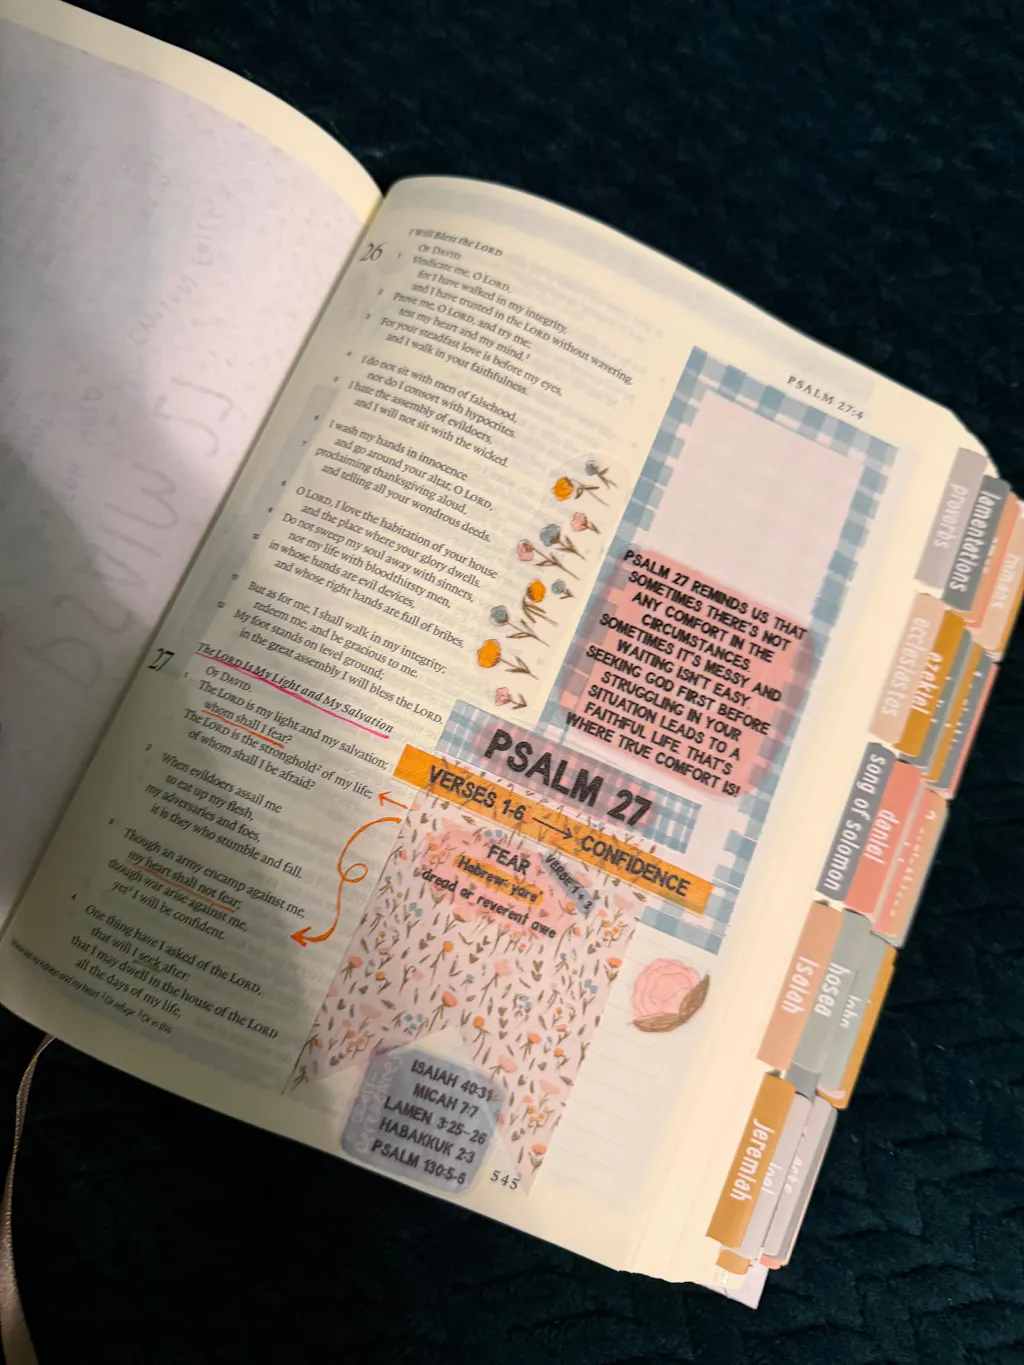 PSALM 27:4
I Will Bless the LORD
26 OF DAVID.
1 Vindicate me, O LORD,
for I have walked in my integrity,
and I have trusted in the LORD without wavering.
2 Prove me, O LORD, and try me;
test my heart and my mind.1
3 For your steadfast love is before my eyes,
and I walk in your faithfulness.
4 I do not sit with men of falsehood,
nor do I consort with hypocrites.
5 I hate the assembly of evildoers,
and I will not sit with the wicked.
6 I wash my hands in innocence
and go around your altar, O LORD,
7 proclaiming thanksgiving aloud,
and telling all your wondrous deeds.
8 O LORD, I love the habitation of your house
and the place where your glory dwells.
9 Do not sweep my soul away with sinners,
nor my life with bloodthirsty men,
10 in whose hands are evil devices,
and whose right hands are full of bribes.
11 But as for me, I shall walk in my integrity;
redeem me, and be gracious to me.
12 My foot stands on level ground;
in the great assembly I will bless the LORD.
The LORD Is My Light and My Salvation
27 OF DAVID.
1 The LORD is my light and my salvation;
whom shall I fear?
The LORD is the stronghold2 of my life;
of whom shall I be afraid?
2 When evildoers assail me
to eat up my flesh,
my adversaries and foes,
it is they who stumble and fall.
3 Though an army encamp against me,
my heart shall not fear;
though war arise against me,
yet3 I will be confident.
4 One thing have I asked of the LORD,
that will I seek after:
that I may dwell in the house of the LORD
all the days of my life,
my kidneys and my heart 2 Or refuge 3 Or in this
PSALM 27 REMINDS US THAT
SOMETIMES THERE'S NOT
ANY COMFORT IN THE
CIRCUMSTANCES.
SOMETIMES IT'S MESSY AND
WAITING ISN'T EASY.
SEEKING GOD FIRST BEFORE
STRUGGLING IN YOUR
SITUATION LEADS TO A
FAITHFUL LIFE THAT'S
WHERE TRUE COMFORT IS!
PSALM 27
VERSES 1-6 → CONFIDENCE
FEAR
VERSE 1 + 3
Hebrew: yare
dread or reverent awe
ISAIAH 40:31
MICAH 7:7
LAMEN. 3:25-26
HABAKKUK 2:3
PSALM 130:5-6
545
proverbs
lamentations
romans
ecclesiastes
ezekiel
song of solomon
daniel
isaiah
hosea
john
jeremiah
joel